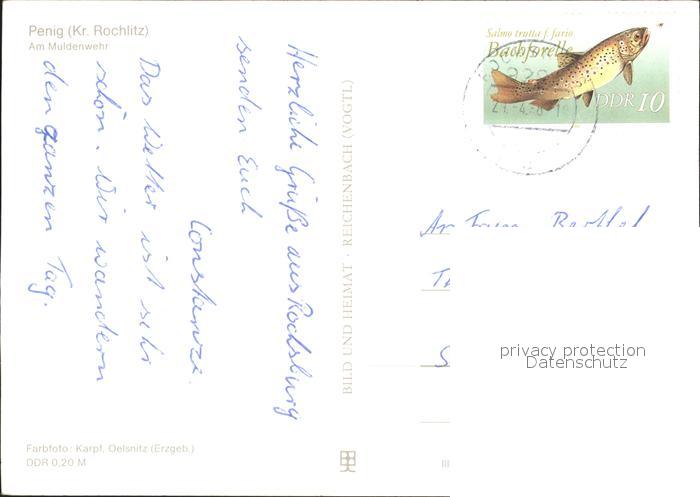 Penig (Kr. Rochlitz)
Am Muldenwehr
Herzliche Grüße aus Rochsburg
senden Euch
Constanze.
Das Wetter ist sehr
schön. Wir wandern
den ganzen Tag.
Farbfoto: Karpf, Oelsnitz (Erzgeb.)
DDR 0,20 M
BILD UND HEIMAT · REICHENBACH (VOGTL)
Salmo trutta f. fario
Bachforelle
DDR 10
privacy protection
Datenschutz
III